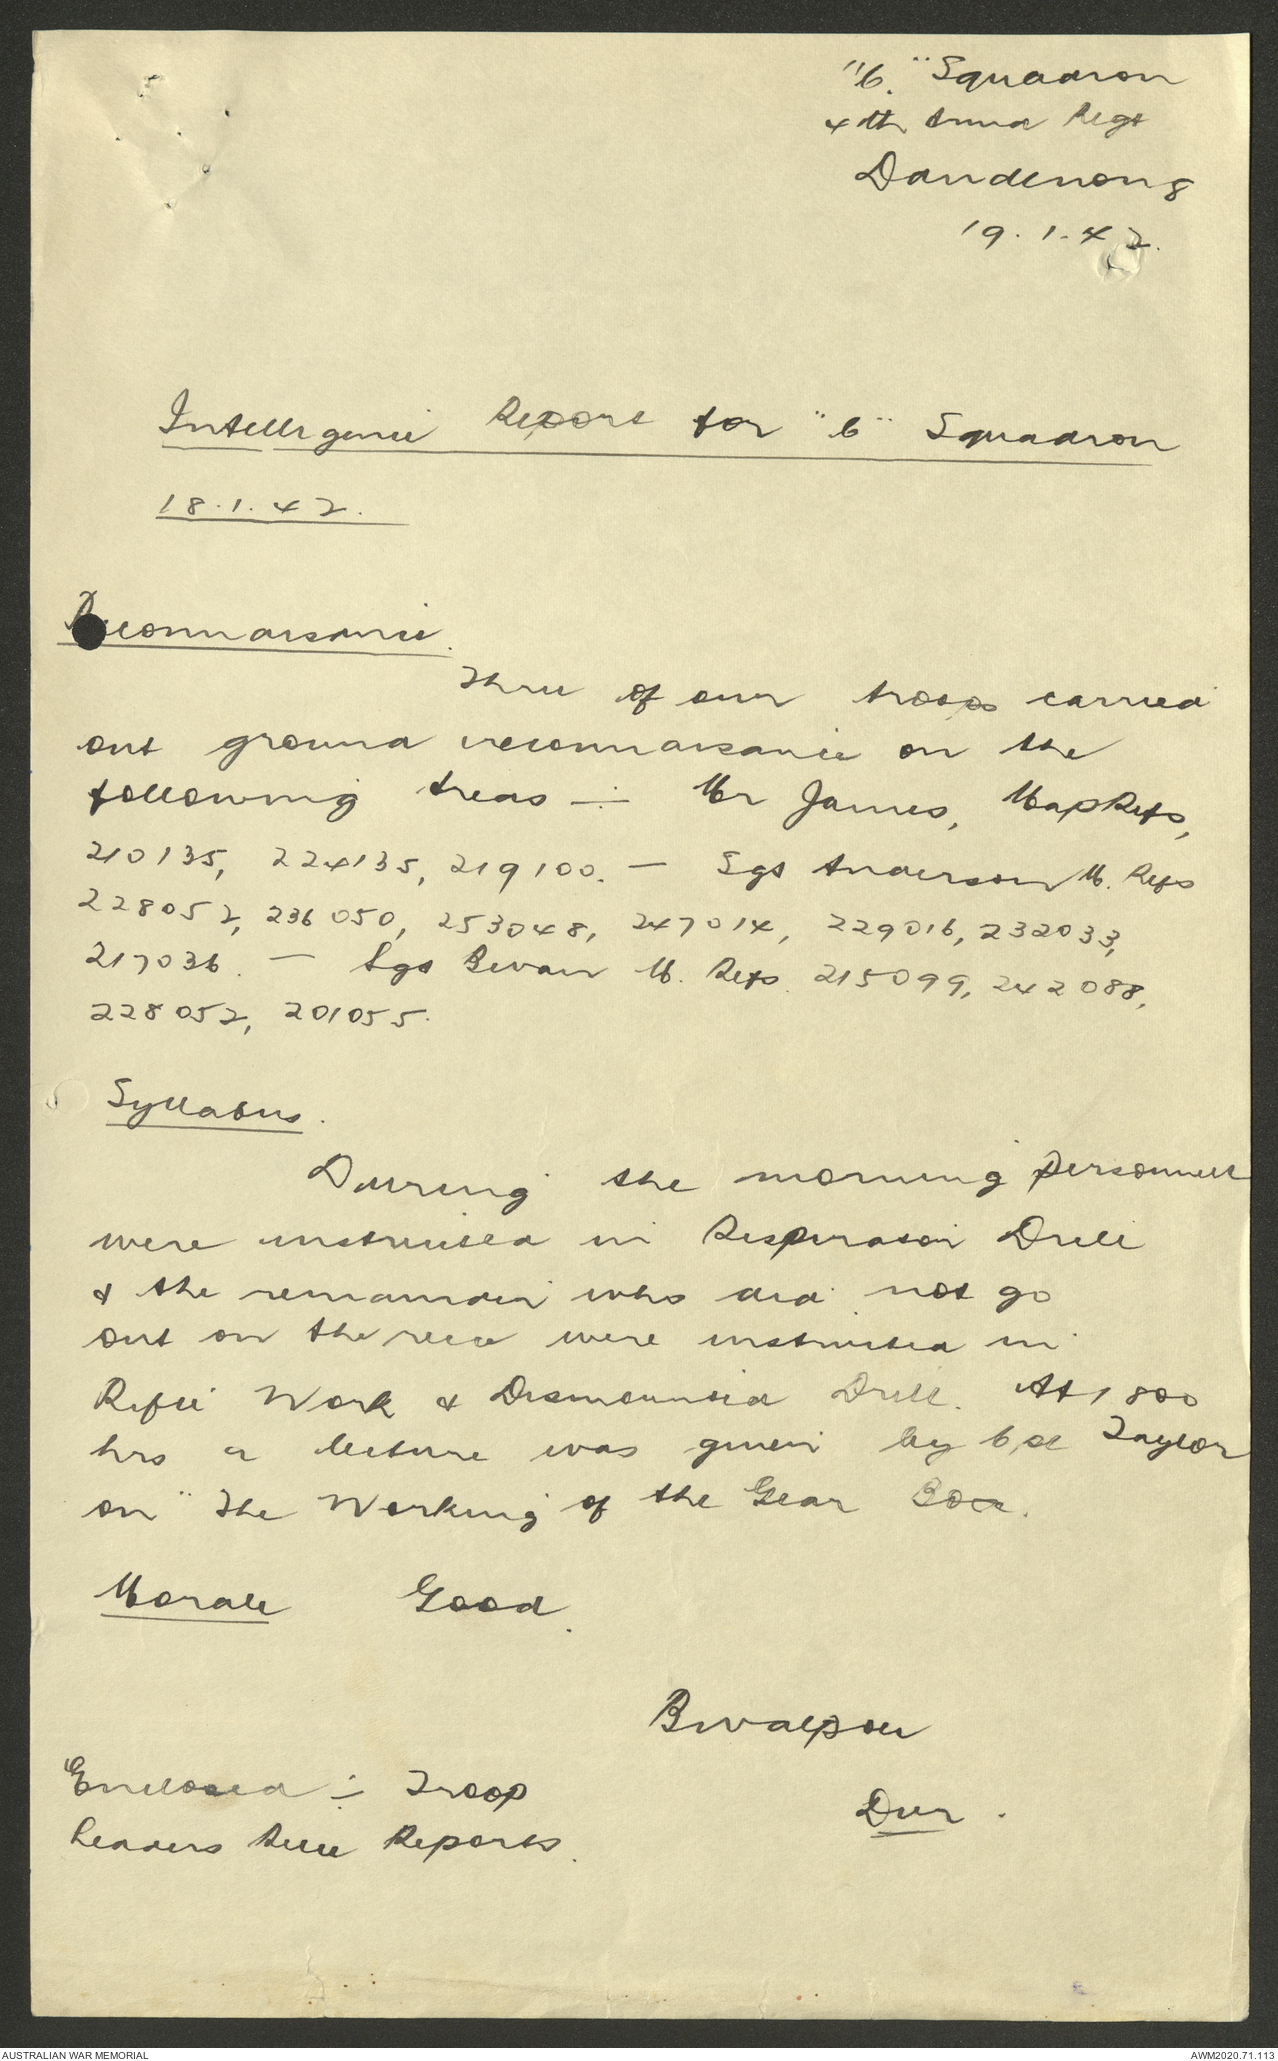 "C" Squadron
4th Armd Regt
Dandenong
19.1.42.
Intelligence Report for "C" Squadron
18.1.42.
Reconnaissance.
Three of our troops carried
out ground reconnaissance on the
following Areas :- Mr James, Map Refs,
210135, 224135, 219100. - Sgt Anderson M. Refs
228052, 236050, 253048, 247014, 229016, 232033,
217036. - Sgt Bevan M. Refs. 215099, 242088,
228052, 201055.
Syllabus.
During the morning personnell
were instructed in Respirator Drill
& the remainder who did not go
out on the recce were instructed in
Rifle Work & Dismounted Drill. At 1800
hrs a lecture was given by Cpl Taylor
on "The Working of the Gear Box.
Morale Good.
Enclosed :- Troop
Leaders Recce Reports.
AUSTRALIAN WAR MEMORIAL
AWM2020.71.113